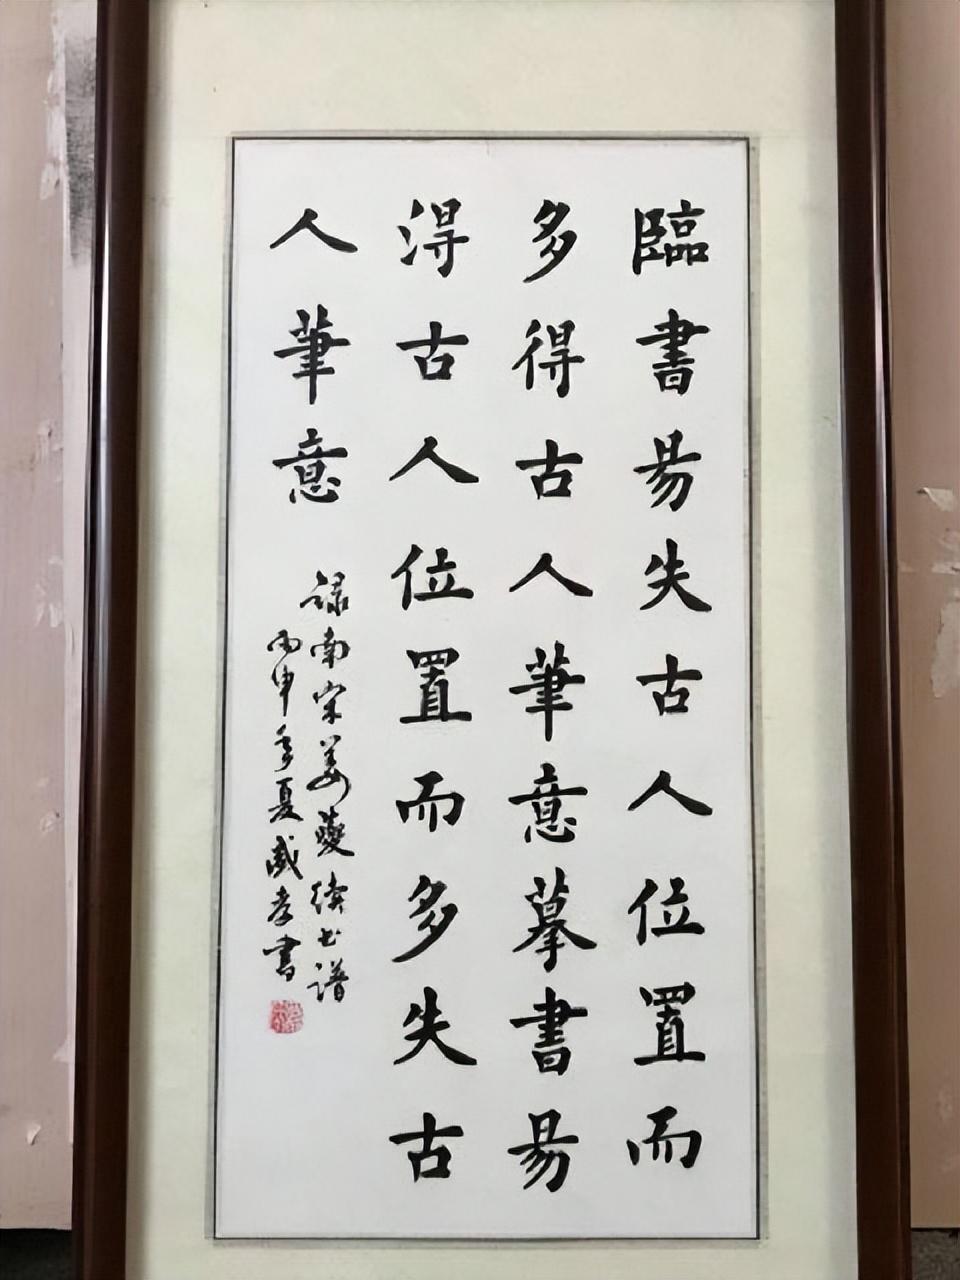 臨書易失古人位置而
多得古人筆意摹書易
得古人位置而多失古
人筆意
录南宋姜夔续书谱
丙申季夏威孝書